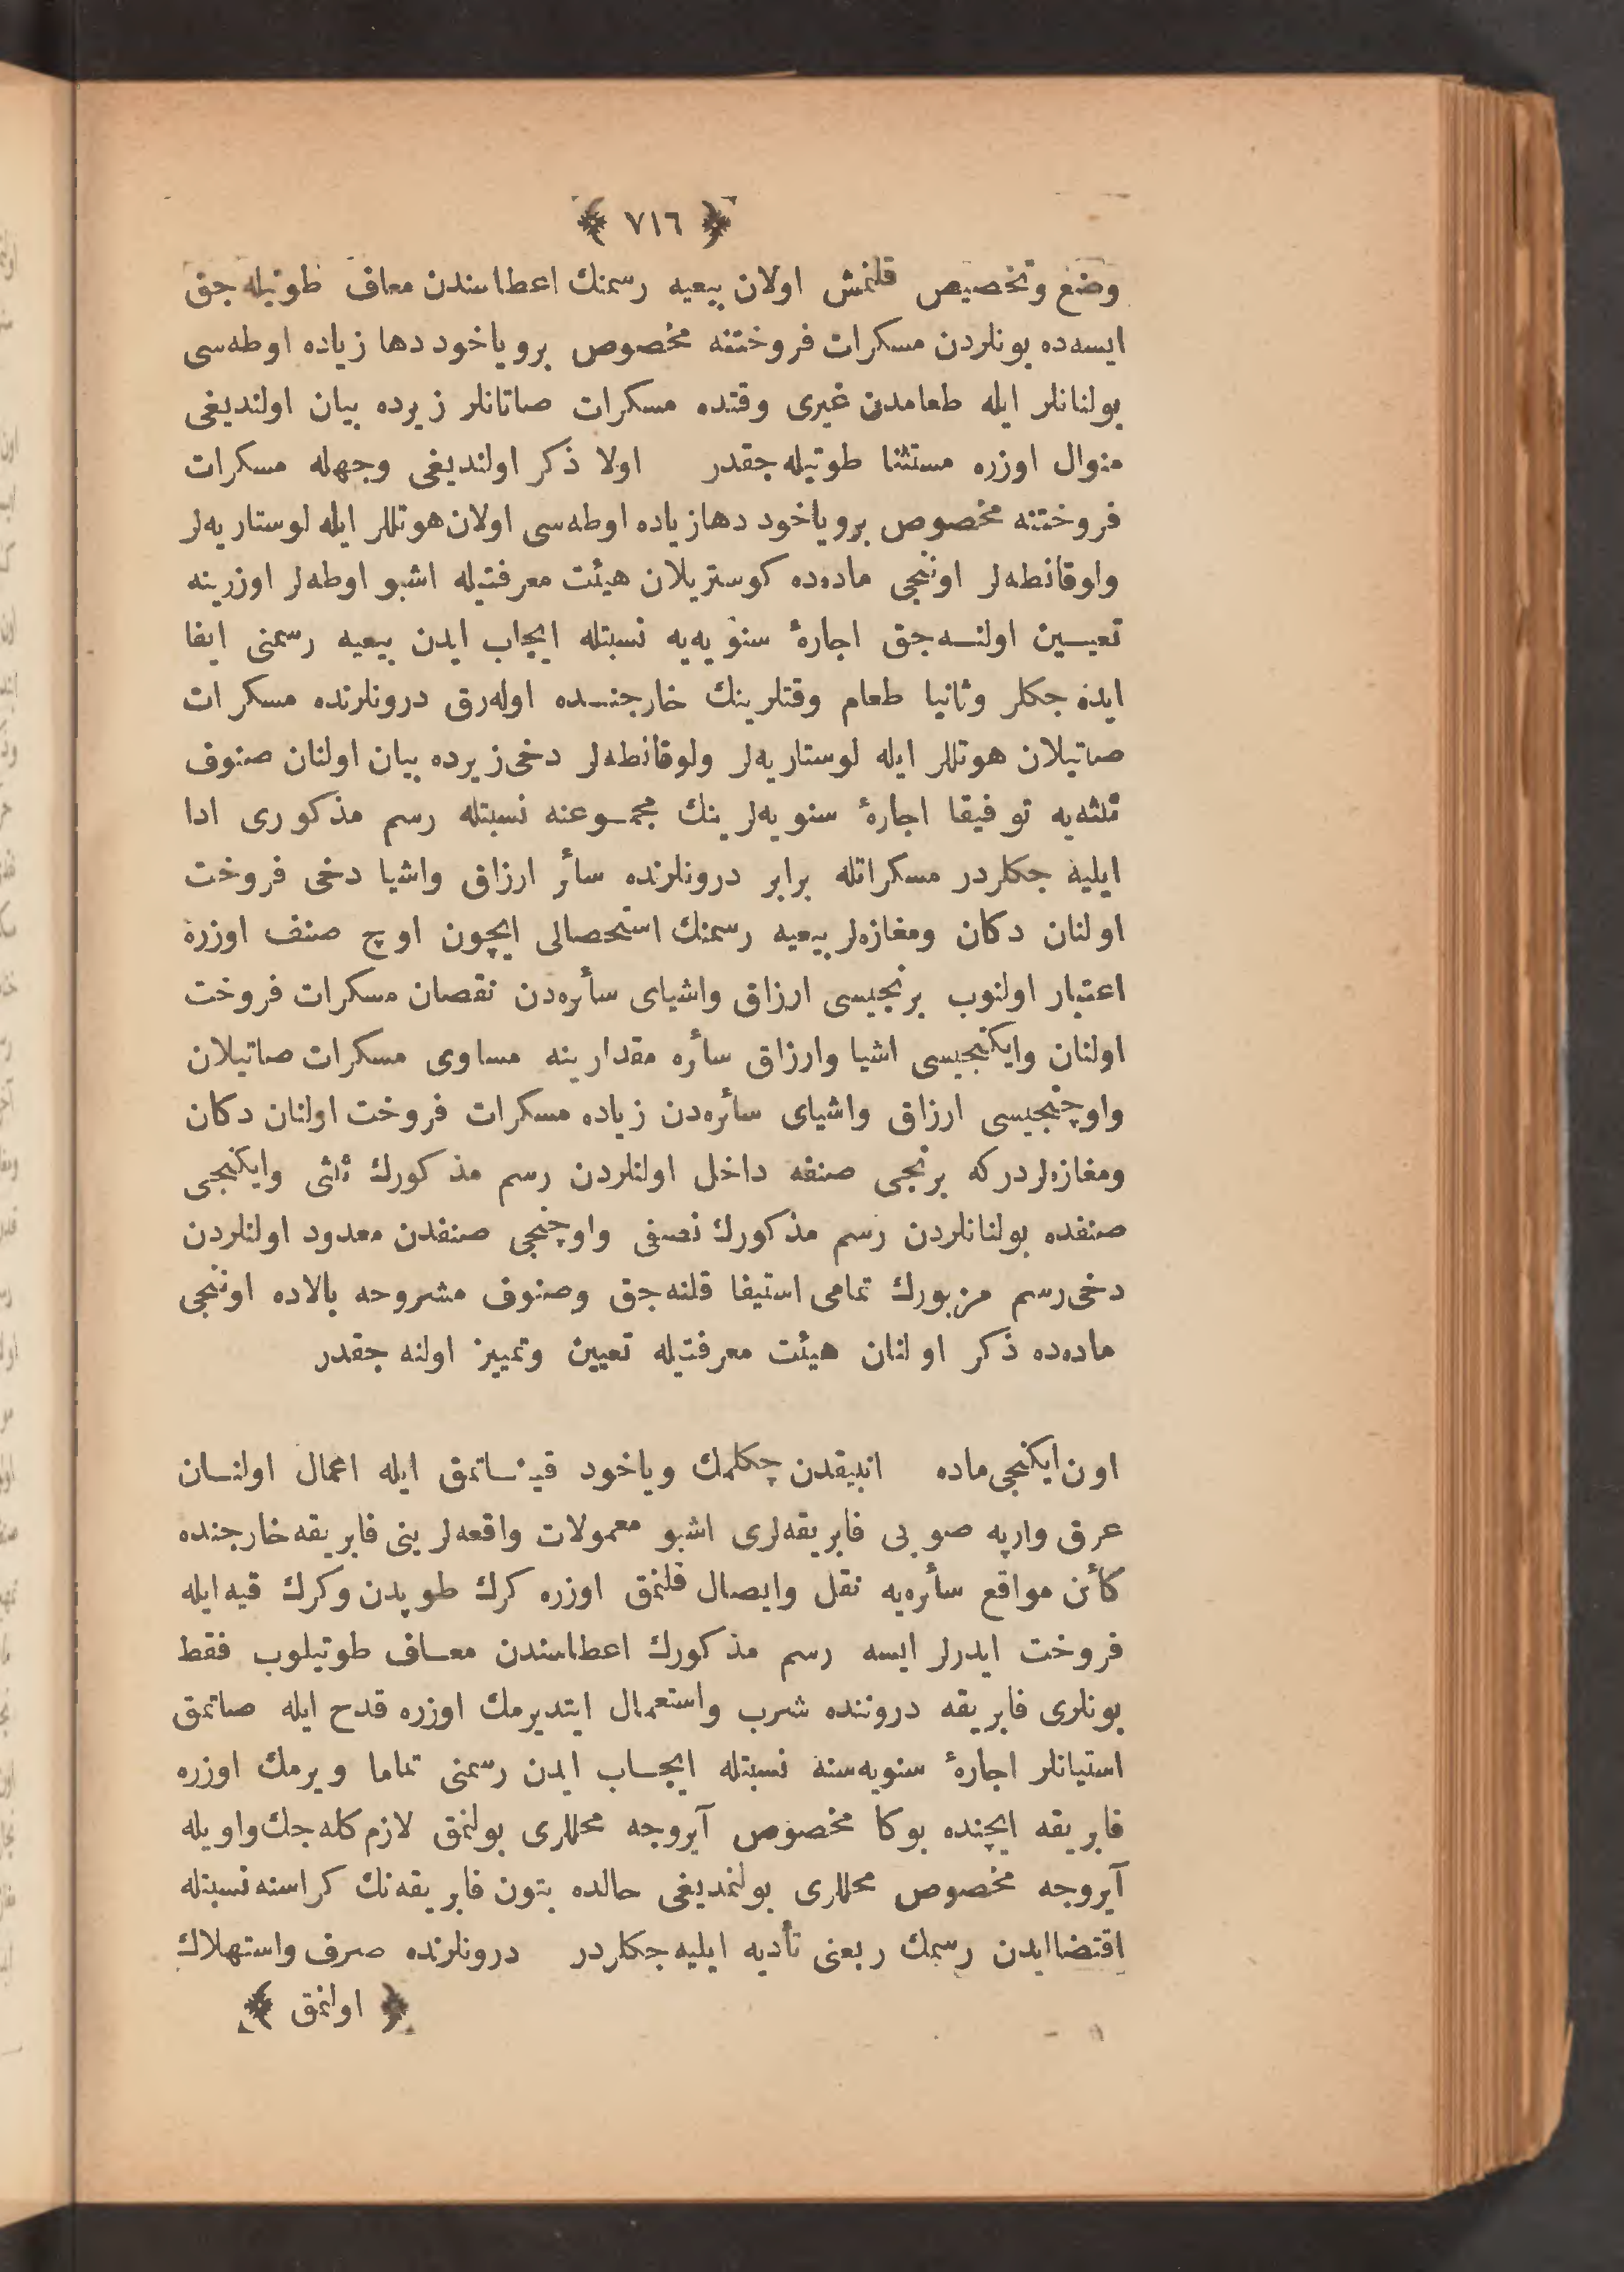 ﴿ ٧١٦ ﴾
وضع وتخصيص قلنمش اولان بيعيه رسمنك اعطاسندن معاف طوتيله جق
ايسه‌ده بونلردن مسكرات فروختنه مخصوص برو ياخود دها زياده اوطه‌سى
بولنانلر ايله طعامدن غيرى وقتده مسكرات صاتانلر زيرده بيان اولنديغى
منوال اوزره مستثنا طوتيله جقدر اولا ذكر اولنديغى وجهله مسكرات
فروختنه مخصوص برو ياخود دها زياده اوطه‌سى اولان هوتللر ايله لوستاريه‌لر
ولوقانطه‌لر اوننجى ماده‌ده كوستريلان هيئت معرفتيله اشبو اوطه‌لر اوزرينه
تعيين اولنه‌جق اجارۀ سنويه‌يه نسبتله ايجاب ايدن بيعيه رسمنى ايفا
ايده جكلر وثانيا طعام وقتلرينك خارجنده اوله‌رق درونلرنده مسكرات
صاتيلان هوتللر ايله لوستاريه‌لر ولوقانطه‌لر دخى زيرده بيان اولنان صنوف
ثلثه‌يه توفيقا اجارۀ سنويه‌لرينك مجموعنه نسبتله رسم مذكورى ادا
ايليه جكلردر مسكراتله برابر درونلرنده سائر ارزاق واشيا دخى فروخت
اولنان دكان ومغازه‌لر بيعيه رسمنك استحصالى ايچون اوچ صنف اوزره
اعتبار اولنوب برنجيسى ارزاق واشياى سائره‌دن نقصان مسكرات فروخت
اولنان وايكنجيسى اشيا وارزاق سائره مقدارينه مساوى مسكرات صاتيلان
واوچنجيسى ارزاق واشياى سائره‌دن زياده مسكرات فروخت اولنان دكان
ومغازه‌لردركه برنجى صنفه داخل اولنلردن رسم مذكورك ثلثى وايكنجى
صنفده بولنانلردن رسم مذكورك نصفى واوچنجى صنفدن معدود اولنلردن
دخى رسم مزبورك تمامى استيفا قلنه جق وصنوف مشروحه بالاده اوننجى
ماده‌ده ذكر اولنان هيئت معرفتيله تعيين وتمييز اولنه جقدر
اون ايكنجى ماده انبيقدن چكلمك وياخود قيناتمق ايله اعمال اولنان
عرق وارپه صويى فابريقه‌لرى اشبو معمولات واقعه‌لرينى فابريقه خارجنده
كائن مواقع سائره‌يه نقل وايصال قلنمق اوزره كرك طوپدن وكرك قيه ايله
فروخت ايدرلر ايسه رسم مذكورك اعطاسندن معاف طوتيلوب فقط
بونلرى فابريقه دروننده شرب واستعمال ايتديرمك اوزره قدح ايله صاتمق
استيانلر اجارۀ سنويه‌سنه نسبتله ايجاب ايدن رسمنى تماما ويرمك اوزره
فابريقه ايچنده بوكا مخصوص آيروجه محللرى بولنمق لازم كله جك واويله
آيروجه مخصوص محللرى بولنمديغى حالده بتون فابريقه‌نك كراسنه نسبتله
اقتضا ايدن رسمك ربعنى تأديه ايليه جكلردر درونلرنده صرف واستهلاك
﴿ اولنمق ﴾